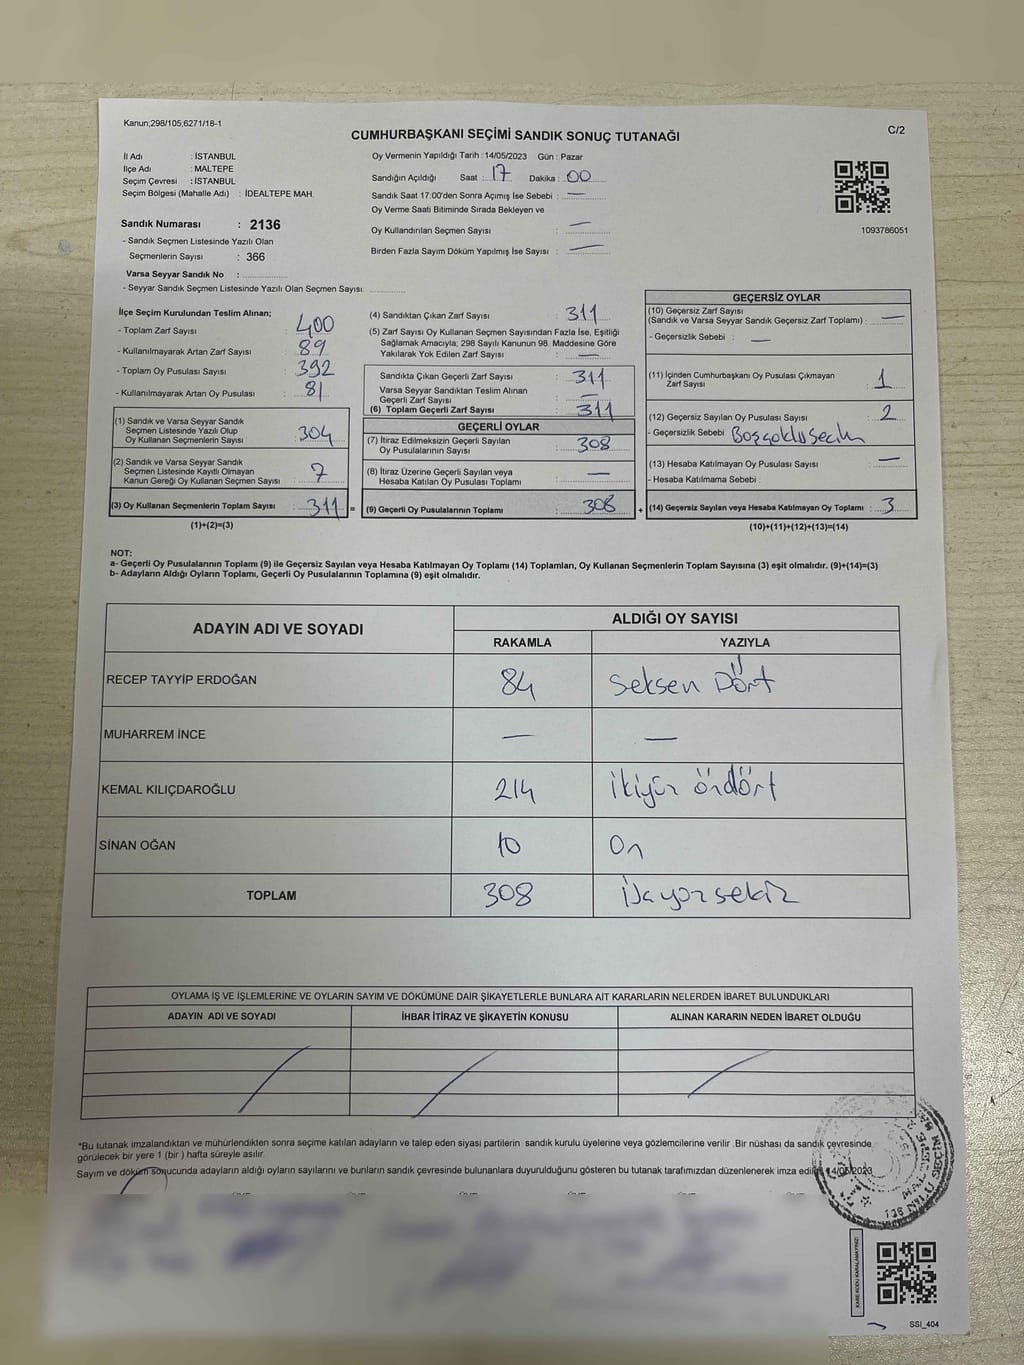 Kanun,298/105,6271/18-1
C/2
CUMHURBAŞKANI SEÇİMİ SANDIK SONUÇ TUTANAĞI
İl Adı : İSTANBUL
İlçe Adı : MALTEPE
Seçim Çevresi : İSTANBUL
Seçim Bölgesi (Mahalle Adı) : İDEALTEPE MAH.
Oy Vermenin Yapıldığı Tarih : 14/05/2023 Gün : Pazar
Sandığın Açıldığı Saat : 17 Dakika : 00
Sandık Saat 17:00'den Sonra Açımış İse Sebebi : —
Oy Verme Saati Bitiminde Sırada Bekleyen ve
Oy Kullandırılan Seçmen Sayısı : —
Birden Fazla Sayım Döküm Yapılmış İse Sayısı : —
1093786051
Sandık Numarası : 2136
- Sandık Seçmen Listesinde Yazılı Olan
Seçmenlerin Sayısı : 366
Varsa Seyyar Sandık No :
- Seyyar Sandık Seçmen Listesinde Yazılı Olan Seçmen Sayısı:
İlçe Seçim Kurulundan Teslim Alınan;
- Toplam Zarf Sayısı : 400
- Kullanılmayarak Artan Zarf Sayısı : 89
- Toplam Oy Pusulası Sayısı : 392
- Kullanılmayarak Artan Oy Pusulası : 81
(1) Sandık ve Varsa Seyyar Sandık
Seçmen Listesinde Yazılı Olup
Oy Kullanan Seçmenlerin Sayısı : 304
(2) Sandık ve Varsa Seyyar Sandık
Seçmen Listesinde Kayıtlı Olmayan
Kanun Gereği Oy Kullanan Seçmen Sayısı : 7
(3) Oy Kullanan Seçmenlerin Toplam Sayısı : 311 =
(1)+(2)=(3)
(4) Sandıktan Çıkan Zarf Sayısı : 311
(5) Zarf Sayısı Oy Kullanan Seçmen Sayısından Fazla İse, Eşitliği
Sağlamak Amacıyla; 298 Sayılı Kanunun 98. Maddesine Göre
Yakılarak Yok Edilen Zarf Sayısı : —
Sandıkta Çıkan Geçerli Zarf Sayısı : 311
Varsa Seyyar Sandıktan Teslim Alınan
Geçerli Zarf Sayısı : —
(6) Toplam Geçerli Zarf Sayısı : 311
GEÇERLİ OYLAR
(7) İtiraz Edilmeksizin Geçerli Sayılan
Oy Pusulalarının Sayısı : 308
(8) İtiraz Üzerine Geçerli Sayılan veya
Hesaba Katılan Oy Pusulası Toplamı : —
(9) Geçerli Oy Pusulalarının Toplamı : 308 +
GEÇERSİZ OYLAR
(10) Geçersiz Zarf Sayısı
(Sandık ve Varsa Seyyar Sandık Geçersiz Zarf Toplamı) : —
- Geçersizlik Sebebi : —
(11) İçinden Cumhurbaşkanı Oy Pusulası Çıkmayan
Zarf Sayısı : 1
(12) Geçersiz Sayılan Oy Pusulası Sayısı : 2
- Geçersizlik Sebebi
(13) Hesaba Katılmayan Oy Pusulası Sayısı : —
- Hesaba Katılmama Sebebi :
(14) Geçersiz Sayılan veya Hesaba Katılmayan Oy Toplamı : 3
(10)+(11)+(12)+(13)=(14)
NOT:
a- Geçerli Oy Pusulalarının Toplamı (9) ile Geçersiz Sayılan veya Hesaba Katılmayan Oy Toplamı (14) Toplamları, Oy Kullanan Seçmenlerin Toplam Sayısına (3) eşit olmalıdır. (9)+(14)=(3)
b- Adayların Aldığı Oyların Toplamı, Geçerli Oy Pusulalarının Toplamına (9) eşit olmalıdır.
ADAYIN ADI VE SOYADI ALDIĞI OY SAYISI
RAKAMLA YAZIYLA
RECEP TAYYİP ERDOĞAN 84 Seksen Dört
MUHARREM İNCE — —
KEMAL KILIÇDAROĞLU 214 ikiyüz öndört
SİNAN OĞAN 10 On
TOPLAM 308
OYLAMA İŞ VE İŞLEMLERİNE VE OYLARIN SAYIM VE DÖKÜMÜNE DAİR ŞİKAYETLERLE BUNLARA AİT KARARLARIN NELERDEN İBARET BULUNDUKLARI
ADAYIN ADI VE SOYADI İHBAR İTİRAZ VE ŞİKAYETİN KONUSU ALINAN KARARIN NEDEN İBARET OLDUĞU
*Bu tutanak imzalandıktan ve mühürlendikten sonra seçime katılan adayların ve talep eden siyasi partilerin sandık kurulu üyelerine veya gözlemcilerine verilir .Bir nüshası da sandık çevresinde
görülecek bir yere 1 (bir ) hafta süreyle asılır.
Sayım ve döküm sonucunda adayların aldığı oyların sayılarını ve bunların sandık çevresinde bulunanlara duyurulduğunu gösteren bu tutanak tarafımızdan düzenlenerek imza edildi. 14/05/2023
KARE KODU KARALAMAYINIZ!
SSI_404